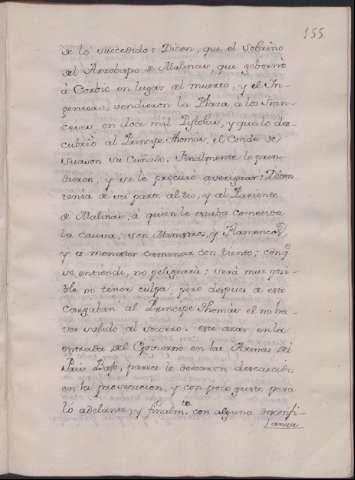 155
de lo succedido: Dicen, que el sobrino
del Arzobispo de Malinas, que gobernó
à Corbie en lugar al muerto, y el In-
geniero, vendieron la Plaza a los Fran-
ceses en doce mil Pistolas, y que lo des-
cubrió al Principe Thomas, el Conde de
Suason su Cuñado, finalmente le pren-
dieron, y se le procura averiguar:
tenia de su parte al reo, y al Pariente
de Malinas, à quien le estaba cometida
la causa, son y Flamencos,
y es menester caminar con tiento; con q.
se entiendi, no peligrará: será mui posi-
ble no tener culpa; pero despues de esto
cargaban al Principe Thomas el no ha-
ver salido al socorro: este azar en la
entrada del Govierno en las Armas del
Pais Bajo, parece le dexaron descaecido
en la prevencion, y con poco gusto para
lo adelante, y finalm.te con alguna desconfi-
anza